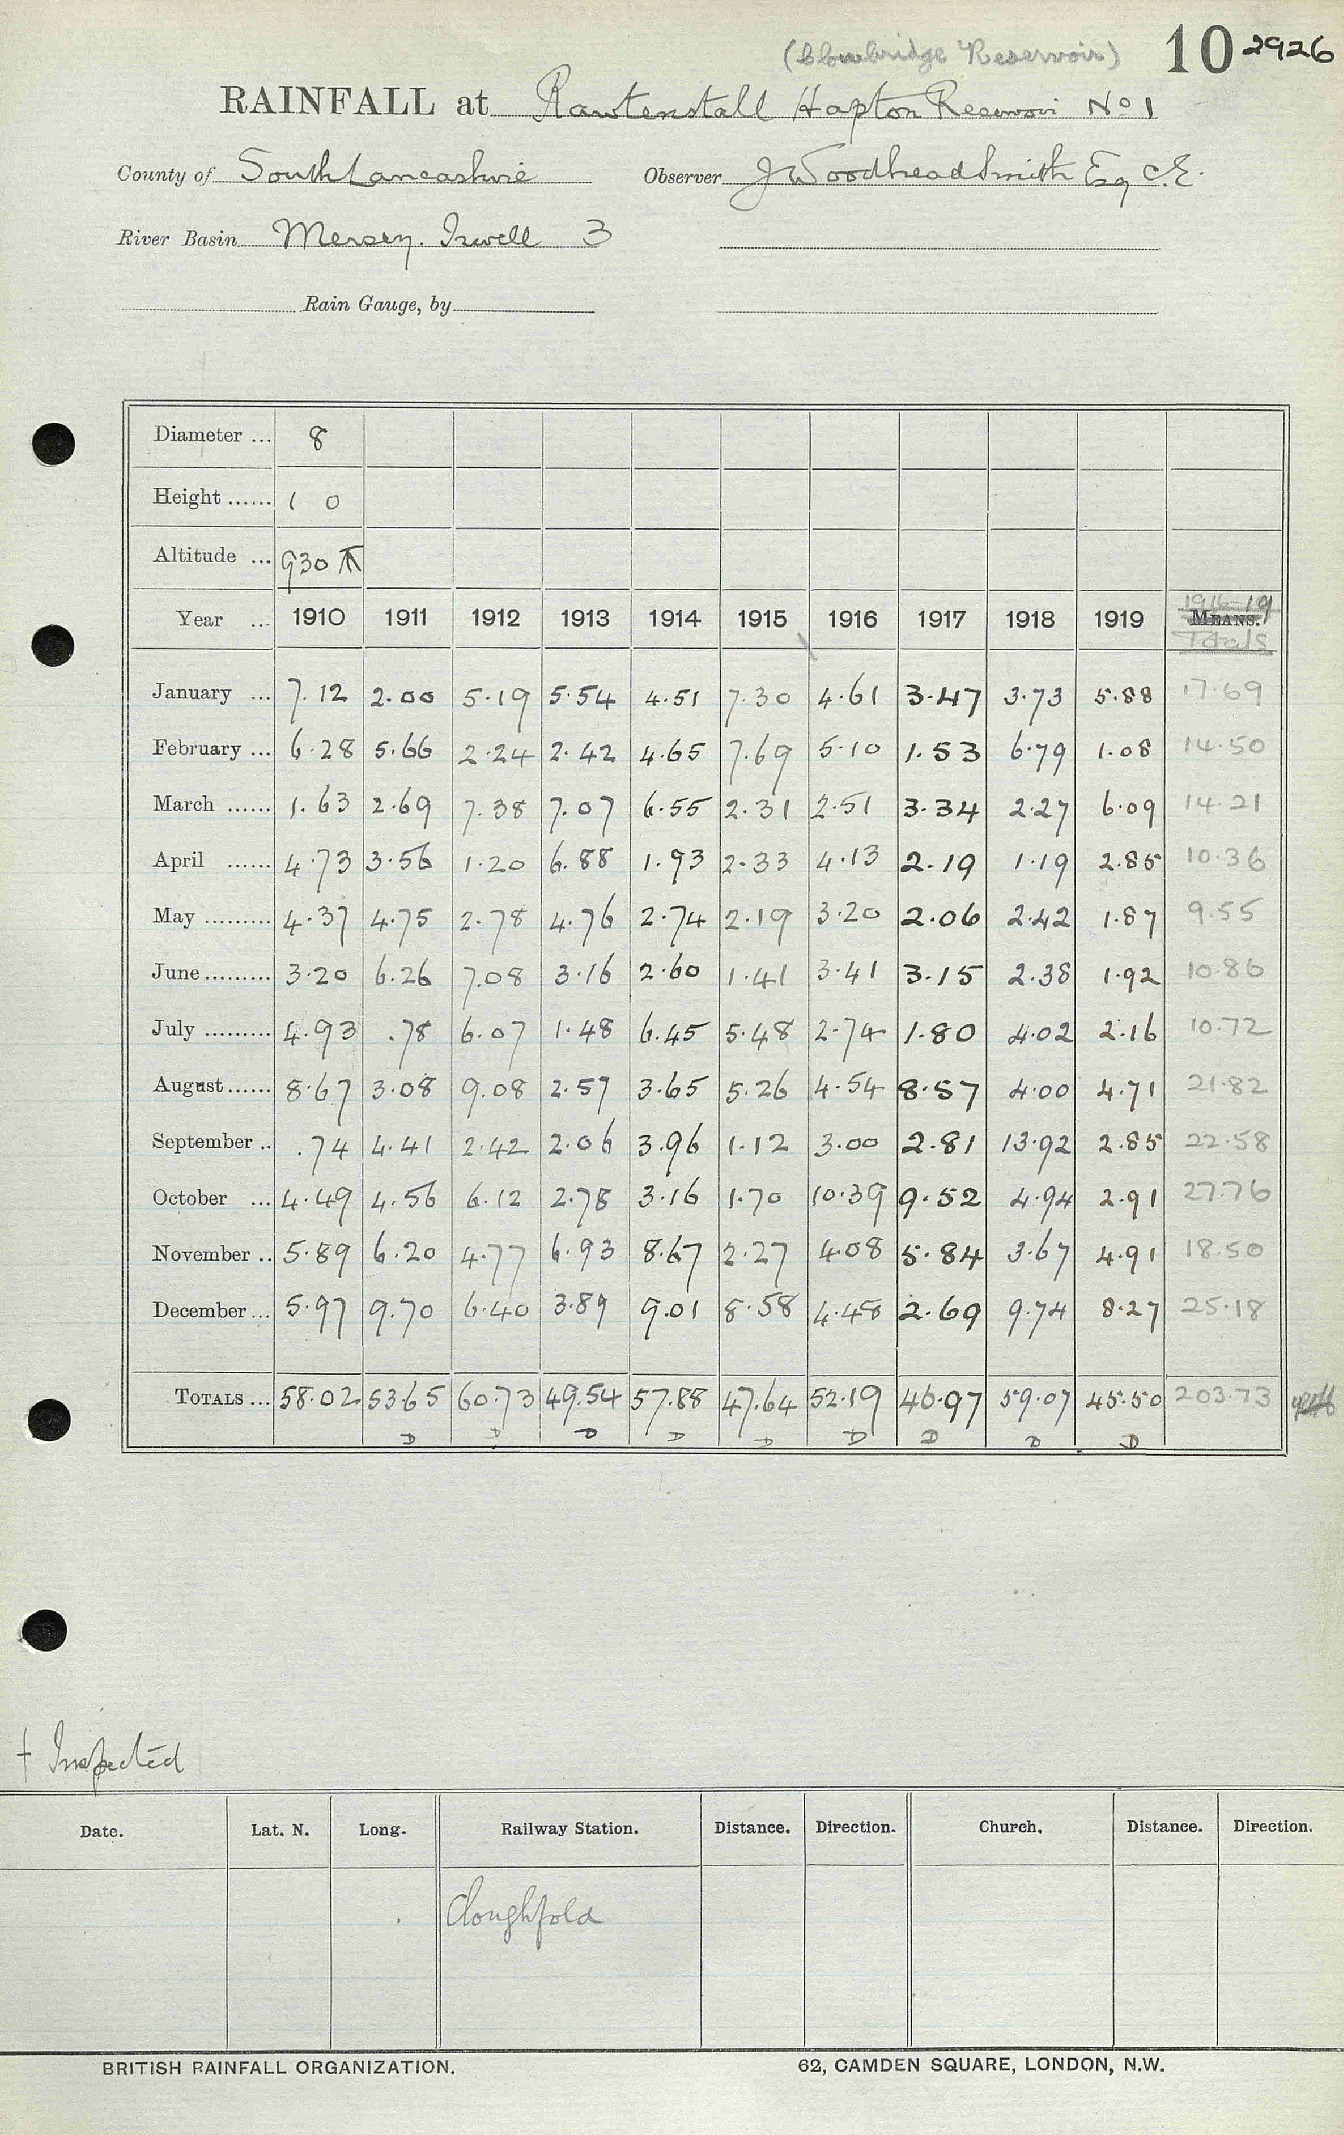 (Clowbridge Reservoir) 10 2926
RAINFALL at Rawtenstall Hapton Reservoir No 1
County of South Lancashire Observer J Woodhead Smith Esq C.E.
River Basin Mersey. Irwell 3
Rain Gauge, by
Diameter ... 8
Height ...... 1 0
Altitude ... 930
Year ... 1910 1911 1912 1913 1914 1915 1916 1917 1918 1919 1916-19 MEANS. Totals
January ... 7.12 2.00 5.19 5.54 4.51 7.30 4.61 3.47 3.73 5.88 17.69
February ... 6.28 5.66 2.24 2.42 4.65 7.69 5.10 1.53 6.79 1.08 14.50
March ...... 1.63 2.69 7.38 7.07 6.55 2.31 2.51 3.34 2.27 6.09 14.21
April ...... 4.73 3.56 1.20 6.88 1.93 2.33 4.13 2.19 1.19 2.85 10.36
May ......... 4.37 4.75 2.78 4.76 2.74 2.19 3.20 2.06 2.42 1.87 9.55
June ......... 3.20 6.26 7.08 3.16 2.60 1.41 3.41 3.15 2.38 1.92 10.86
July ......... 4.93 .78 6.07 1.48 6.45 5.48 2.74 1.80 4.02 2.16 10.72
August ...... 8.67 3.08 9.08 2.57 3.65 5.26 4.54 8.57 4.00 4.71 21.82
September .. .74 4.41 2.42 2.06 3.96 1.12 3.00 2.81 13.92 2.85 22.58
October ... 4.49 4.56 6.12 2.78 3.16 1.70 10.39 9.52 4.94 2.91 27.76
November .. 5.89 6.20 4.77 6.93 8.67 2.27 4.08 5.84 3.67 4.91 18.50
December ... 5.97 9.70 6.40 3.89 9.01 8.58 4.48 2.69 9.74 8.27 25.18
TOTALS ... 58.02 53.65 60.73 49.54 57.88 47.64 52.19 46.97 59.07 45.50 203.73
D D D D D D D D D
† Inspected
Date. Lat. N. Long. Railway Station. Distance. Direction. Church. Distance. Direction.
Cloughfold
BRITISH RAINFALL ORGANIZATION. 62, CAMDEN SQUARE, LONDON, N.W.